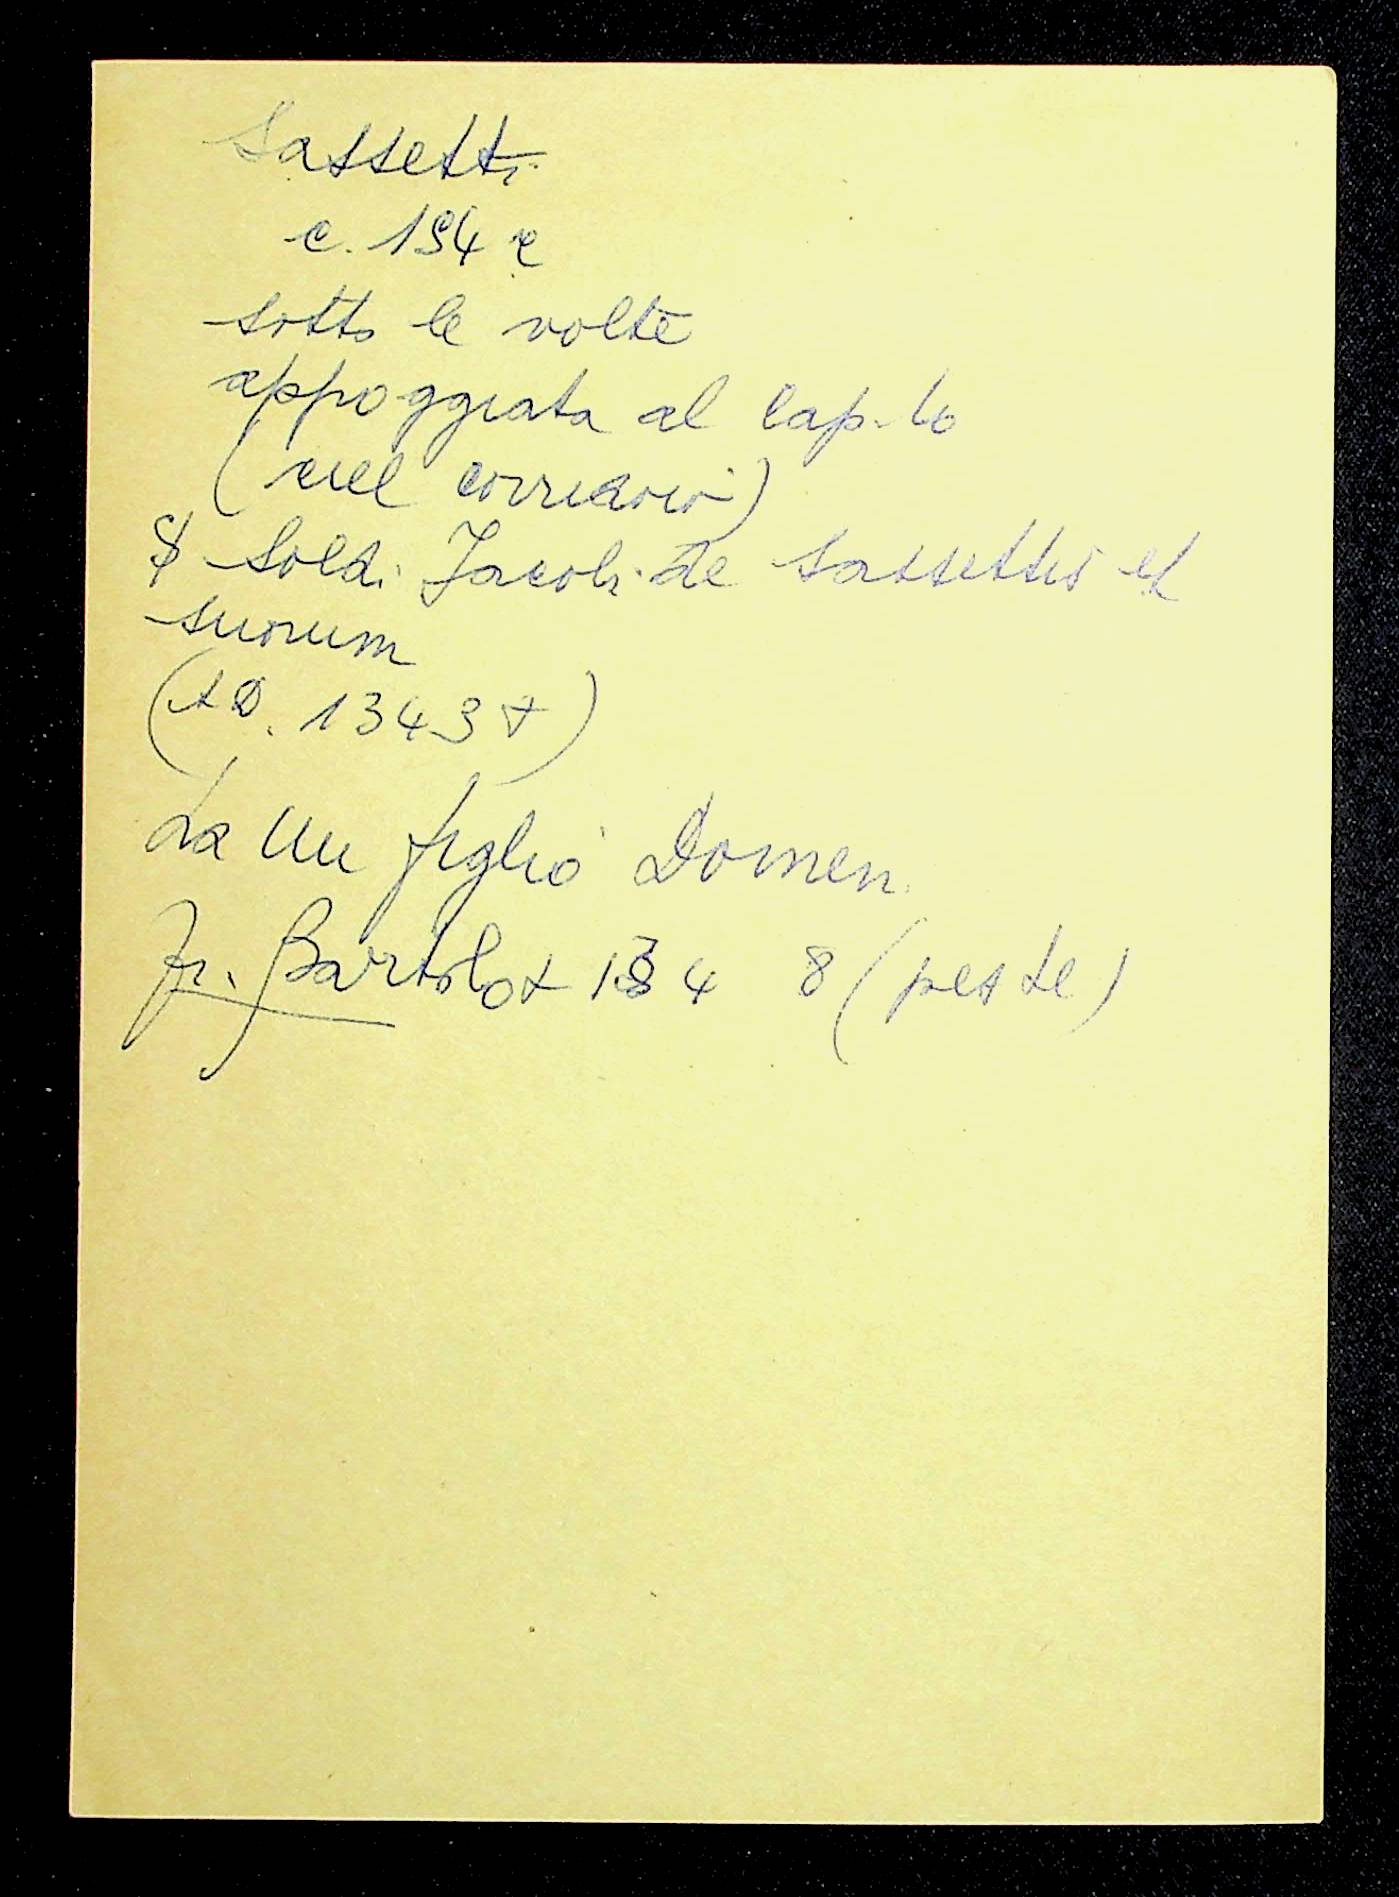 Sassetti
c. 194 r
sotto le volte
appoggiata al Cap.lo
(nel corridoio)
S Soldi Jacobi de Sassettis et
suorum
(A D. 1343 +)
La un figlio Domen.
Fr. Bartolo + 134 8 (peste)